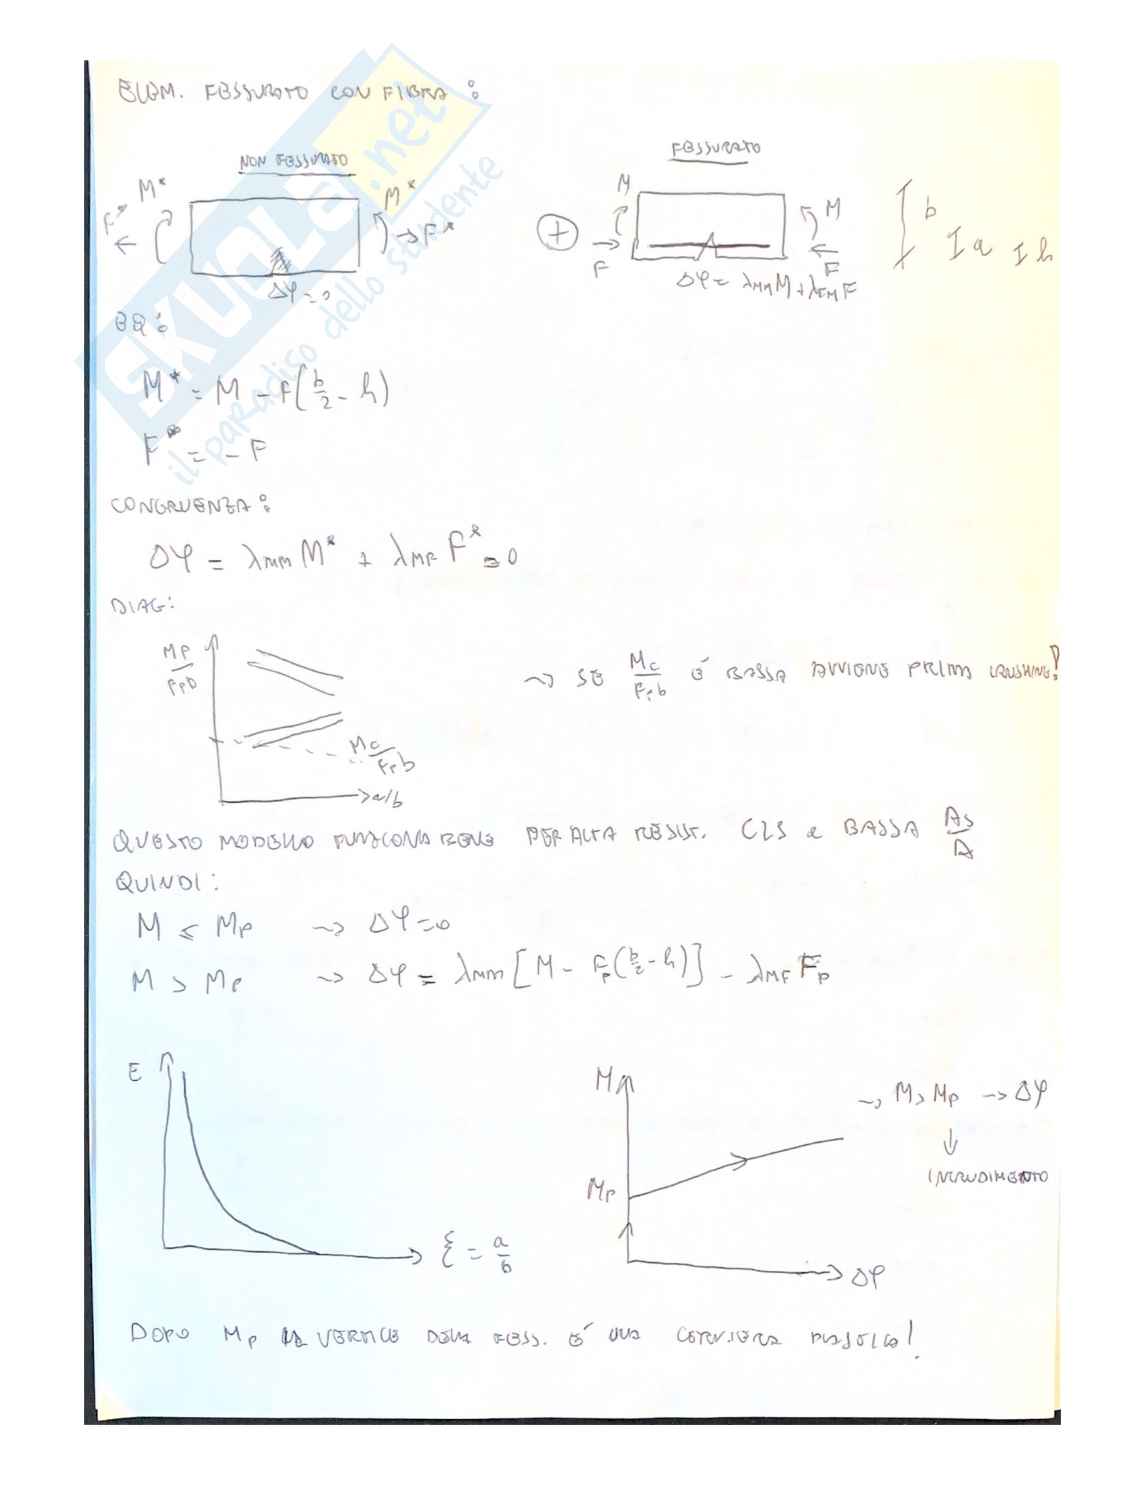 ELEM. FESSURATO CON FIBRA:
NON FESSURATO
FESSURATO
M*
F*
M*
F*
Δφ=0
+
M
F
M
F
Δφ = λMM M + λFM F
b
a
h
EQ:
M* = M - F(b/2 - h)
F* = - F
CONGRUENZA:
Δφ = λMM M* + λMF F* = 0
DIAG:
MP/FPb
MC/FPb
a/b
~> SE MC/FPb É BASSA AVVIENE PRIMA CRUSHING!
QUESTO MODELLO FUNZIONA BENE PER ALTA RESIST. CLS e BASSA AS/A
QUINDI:
M ≤ MP ~> Δφ=0
M > MP ~> Δφ = λMM [M - FP(b/2 - h)] - λMF FP
E
ξ = a/b
M
MP
Δφ
~> M > MP -> Δφ
↓
INCRUDIMENTO
DOPO MP IL VERTICE DELLA FESS. É UNA CERNIERA PLASTICA!
SKUOLA.net
il paradiso dello studente